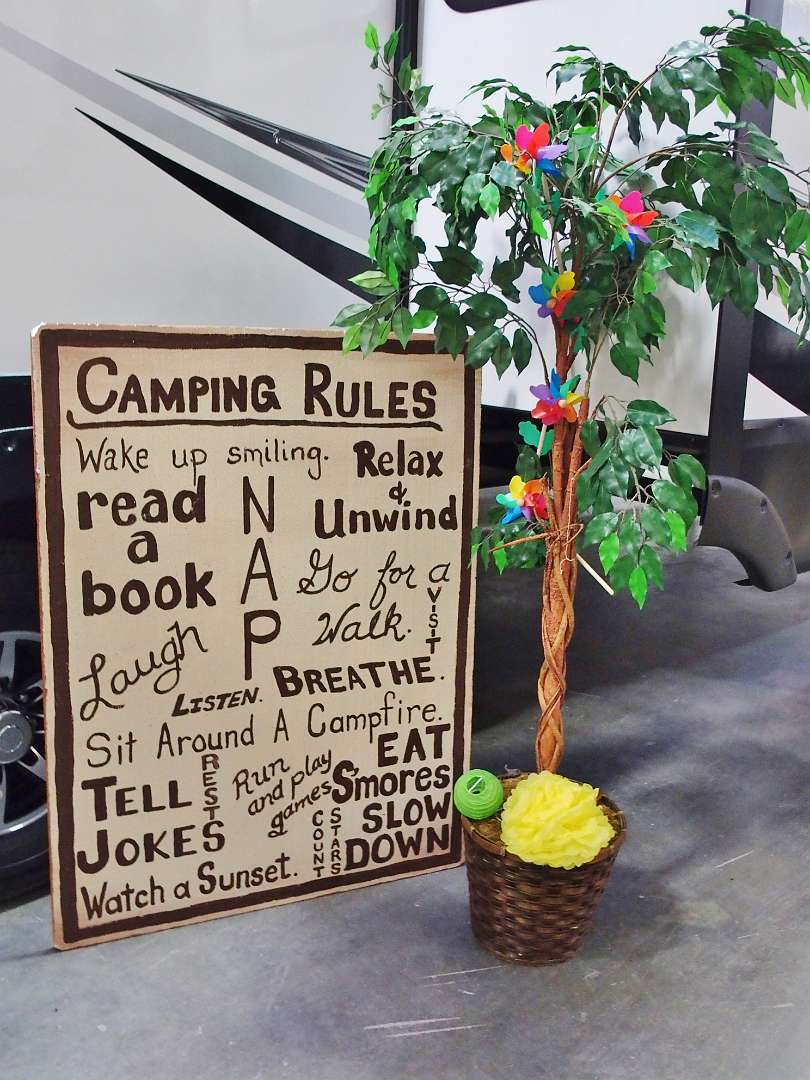 CAMPING RULES
Wake up smiling.
Relax
&
Unwind
read
a
book
NAP
Go for a
Walk.
VISIT
Laugh
LISTEN.
BREATHE.
Sit Around A Campfire.
TELL
JOKES
REST
Run
and play
games
EAT
S'mores
SLOW
DOWN
COUNT
STARS
Watch a Sunset.